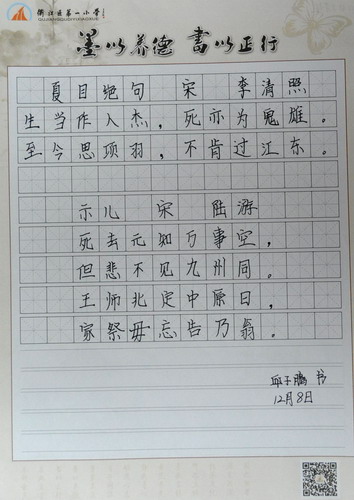 衢江区第一小学
墨以养德 書以正行
夏日绝句 宋 李清照
生当作人杰，死亦为鬼雄。
至今思项羽，不肯过江东。
示儿 宋 陆游
死去元知万事空，
但悲不见九州同。
王师北定中原日，
家祭毋忘告乃翁。
邱子鹏 书
12月8日